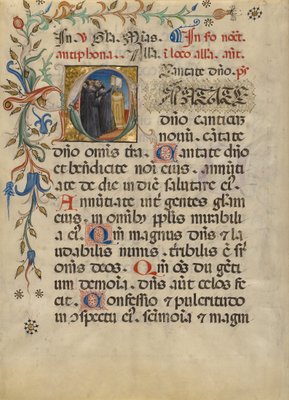 In v Gla. Mās. In fo noct.
antiphona. Alla. i loco alla. añt.
Cantate dño. ps̄
ANTATE
dño canticũ
nouũ. cātate
dño omīs tr̄a. Cantate dño
et bn̄dicite noī eius. annũti
ate de die in diē salutare ei᷒.
Annũtiate int̄ gentes gl̄am
eius. in omīb᷒ pplīs mirabilia
ei᷒. Qm̄ magnus dñs et
laudabilis nimis. t̄ribilis ē s̄r
omīs deos. Qm̄ oēs dij gētiũ
demōia. dñs aũt celos fecit.
Confessio et pulcritudo
in ꝯspectu ei᷒. sc̄imōia et magni